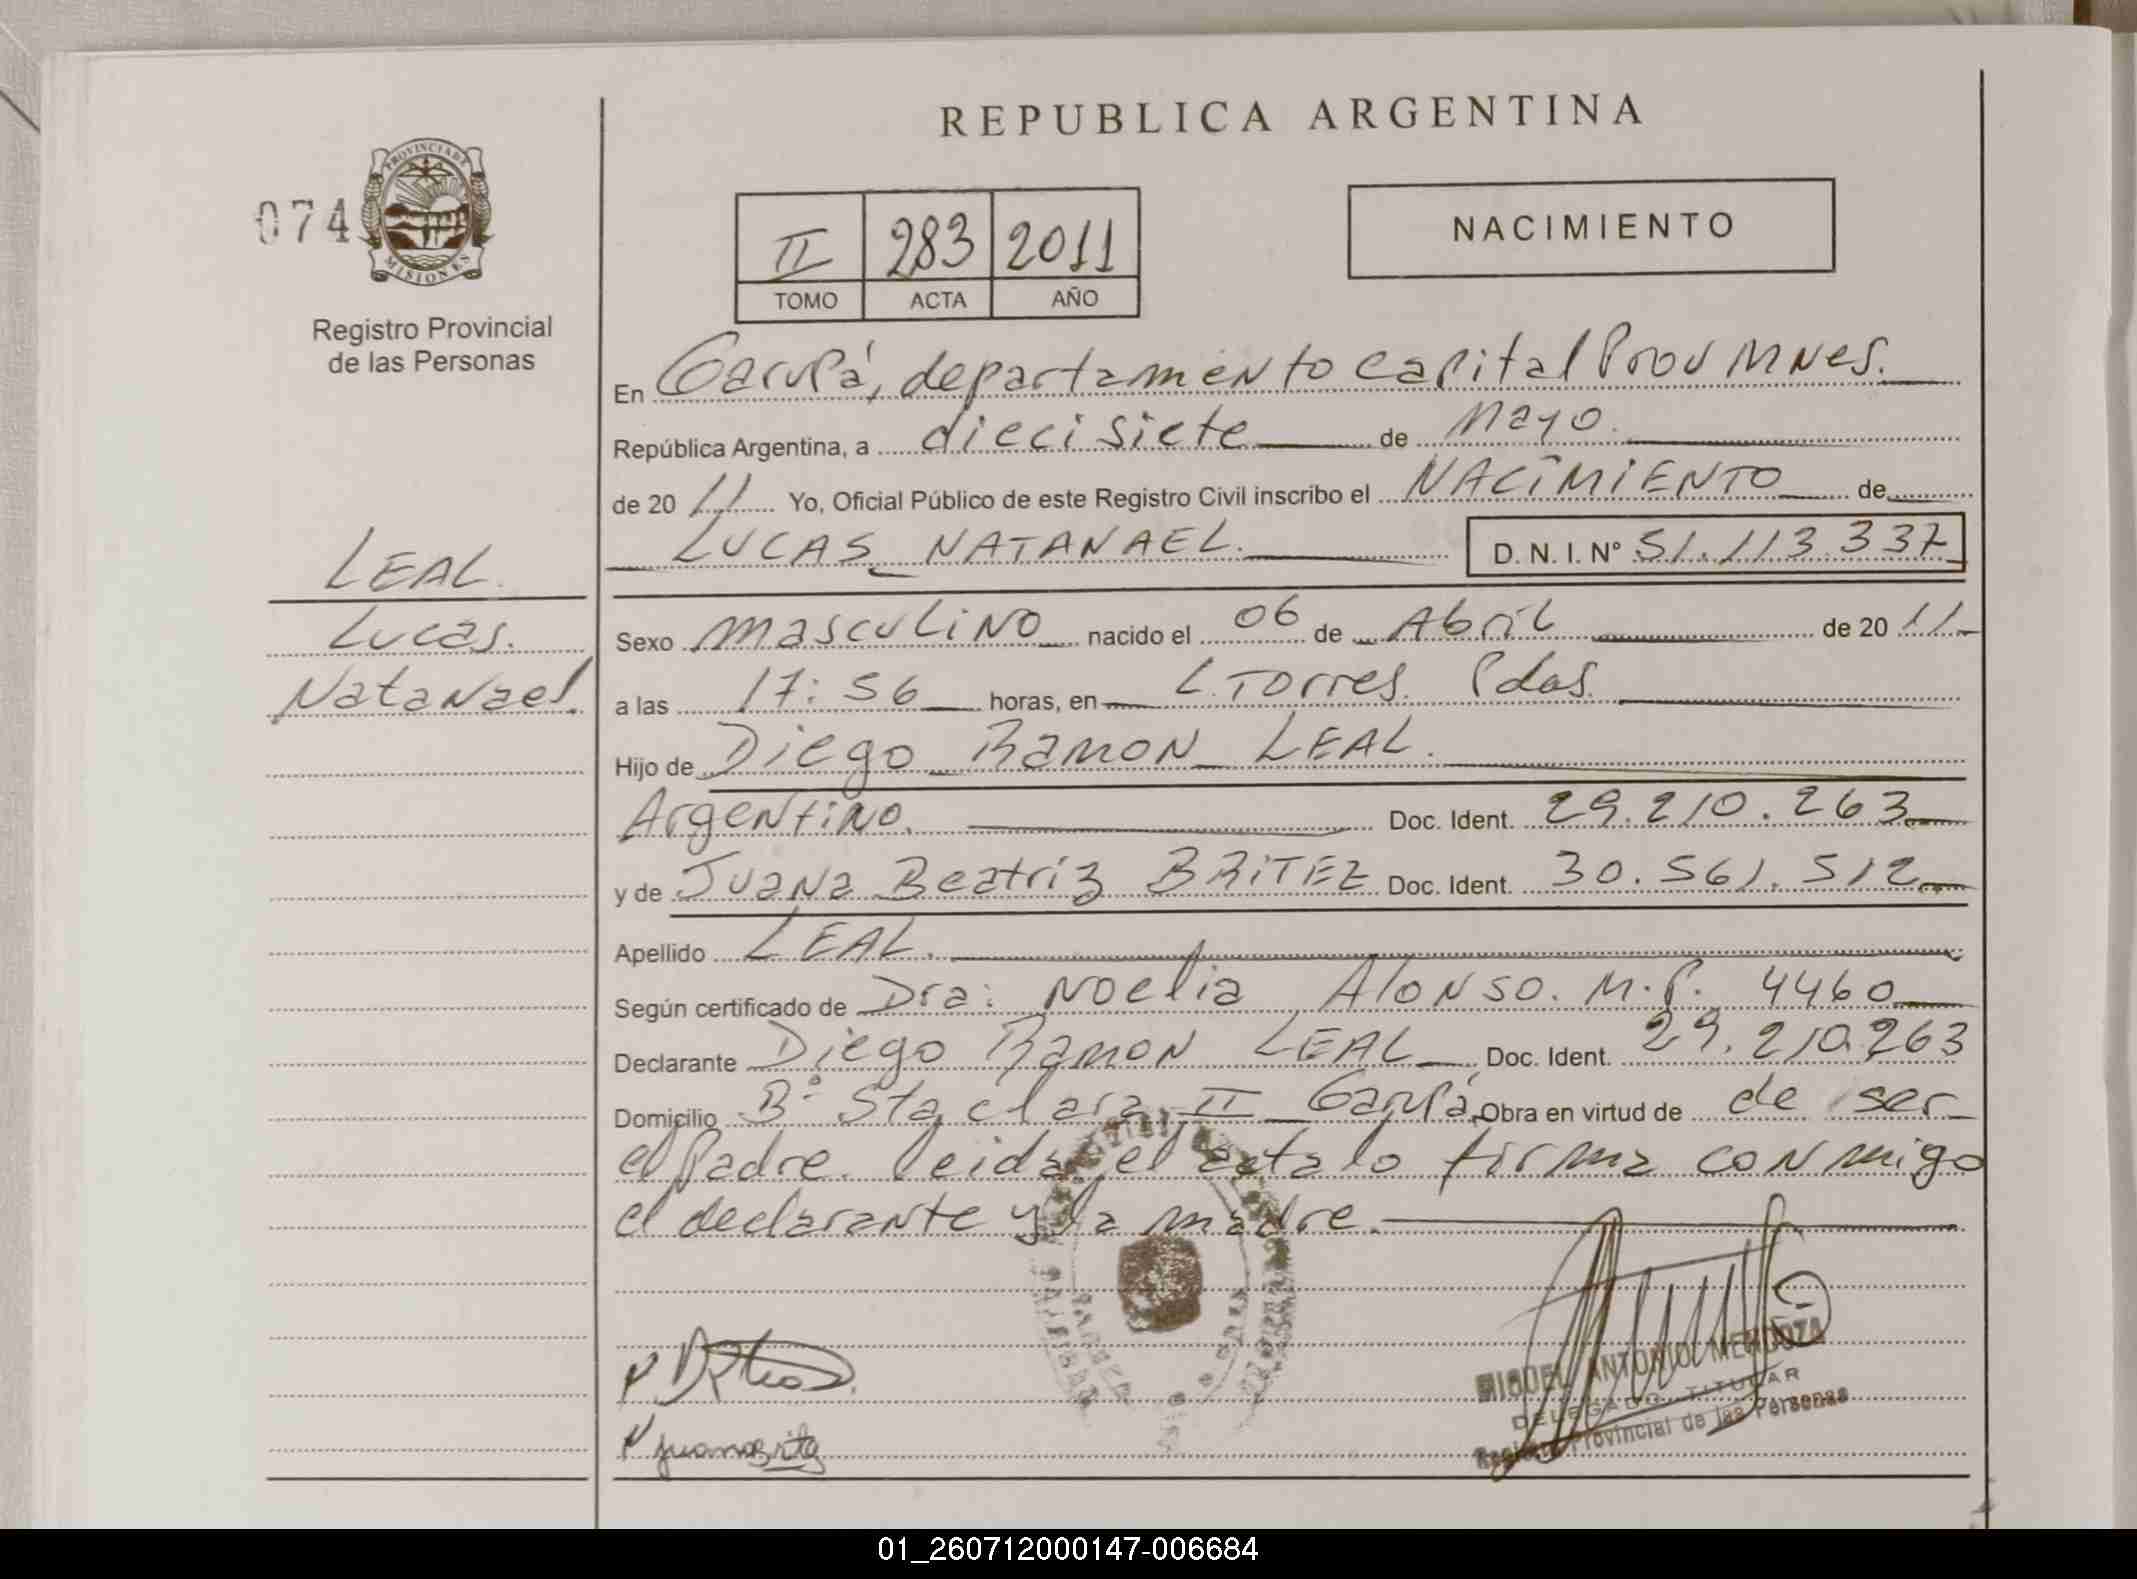 REPUBLICA ARGENTINA
074
PROVINCIA DE
MISIONES
Registro Provincial
de las Personas
II 283 2011
TOMO ACTA AÑO
NACIMIENTO
En Garupá, departamento Capital Prov Mnes.
República Argentina, a diecisiete de Mayo.
de 20 11 Yo, Oficial Público de este Registro Civil inscribo el NACIMIENTO de
LUCAS NATANAEL. D. N. I. Nº 51.113.337
LEAL.
Lucas.
Natanael.
Sexo masculino nacido el 06 de Abril de 20 11
a las 17:56 horas, en L. Torres. Pdas.
Hijo de Diego Ramon LEAL.
Argentino. Doc. Ident. 29.210.263
y de Juana Beatriz BRITEZ Doc. Ident. 30.561.512
Apellido LEAL.
Según certificado de Dra: Noelia Alonso. M.P. 4460
Declarante Diego Ramon LEAL Doc. Ident. 29.210.263
Domicilio Bº Sta clara II Garupá, Obra en virtud de de ser
el Padre. leida el acta lo firma conmigo
el declarante y la madre.
MIGUEL ANTONIO MENDOZA
DELEGADO TITULAR
Registro Provincial de las Personas
01_260712000147-006684